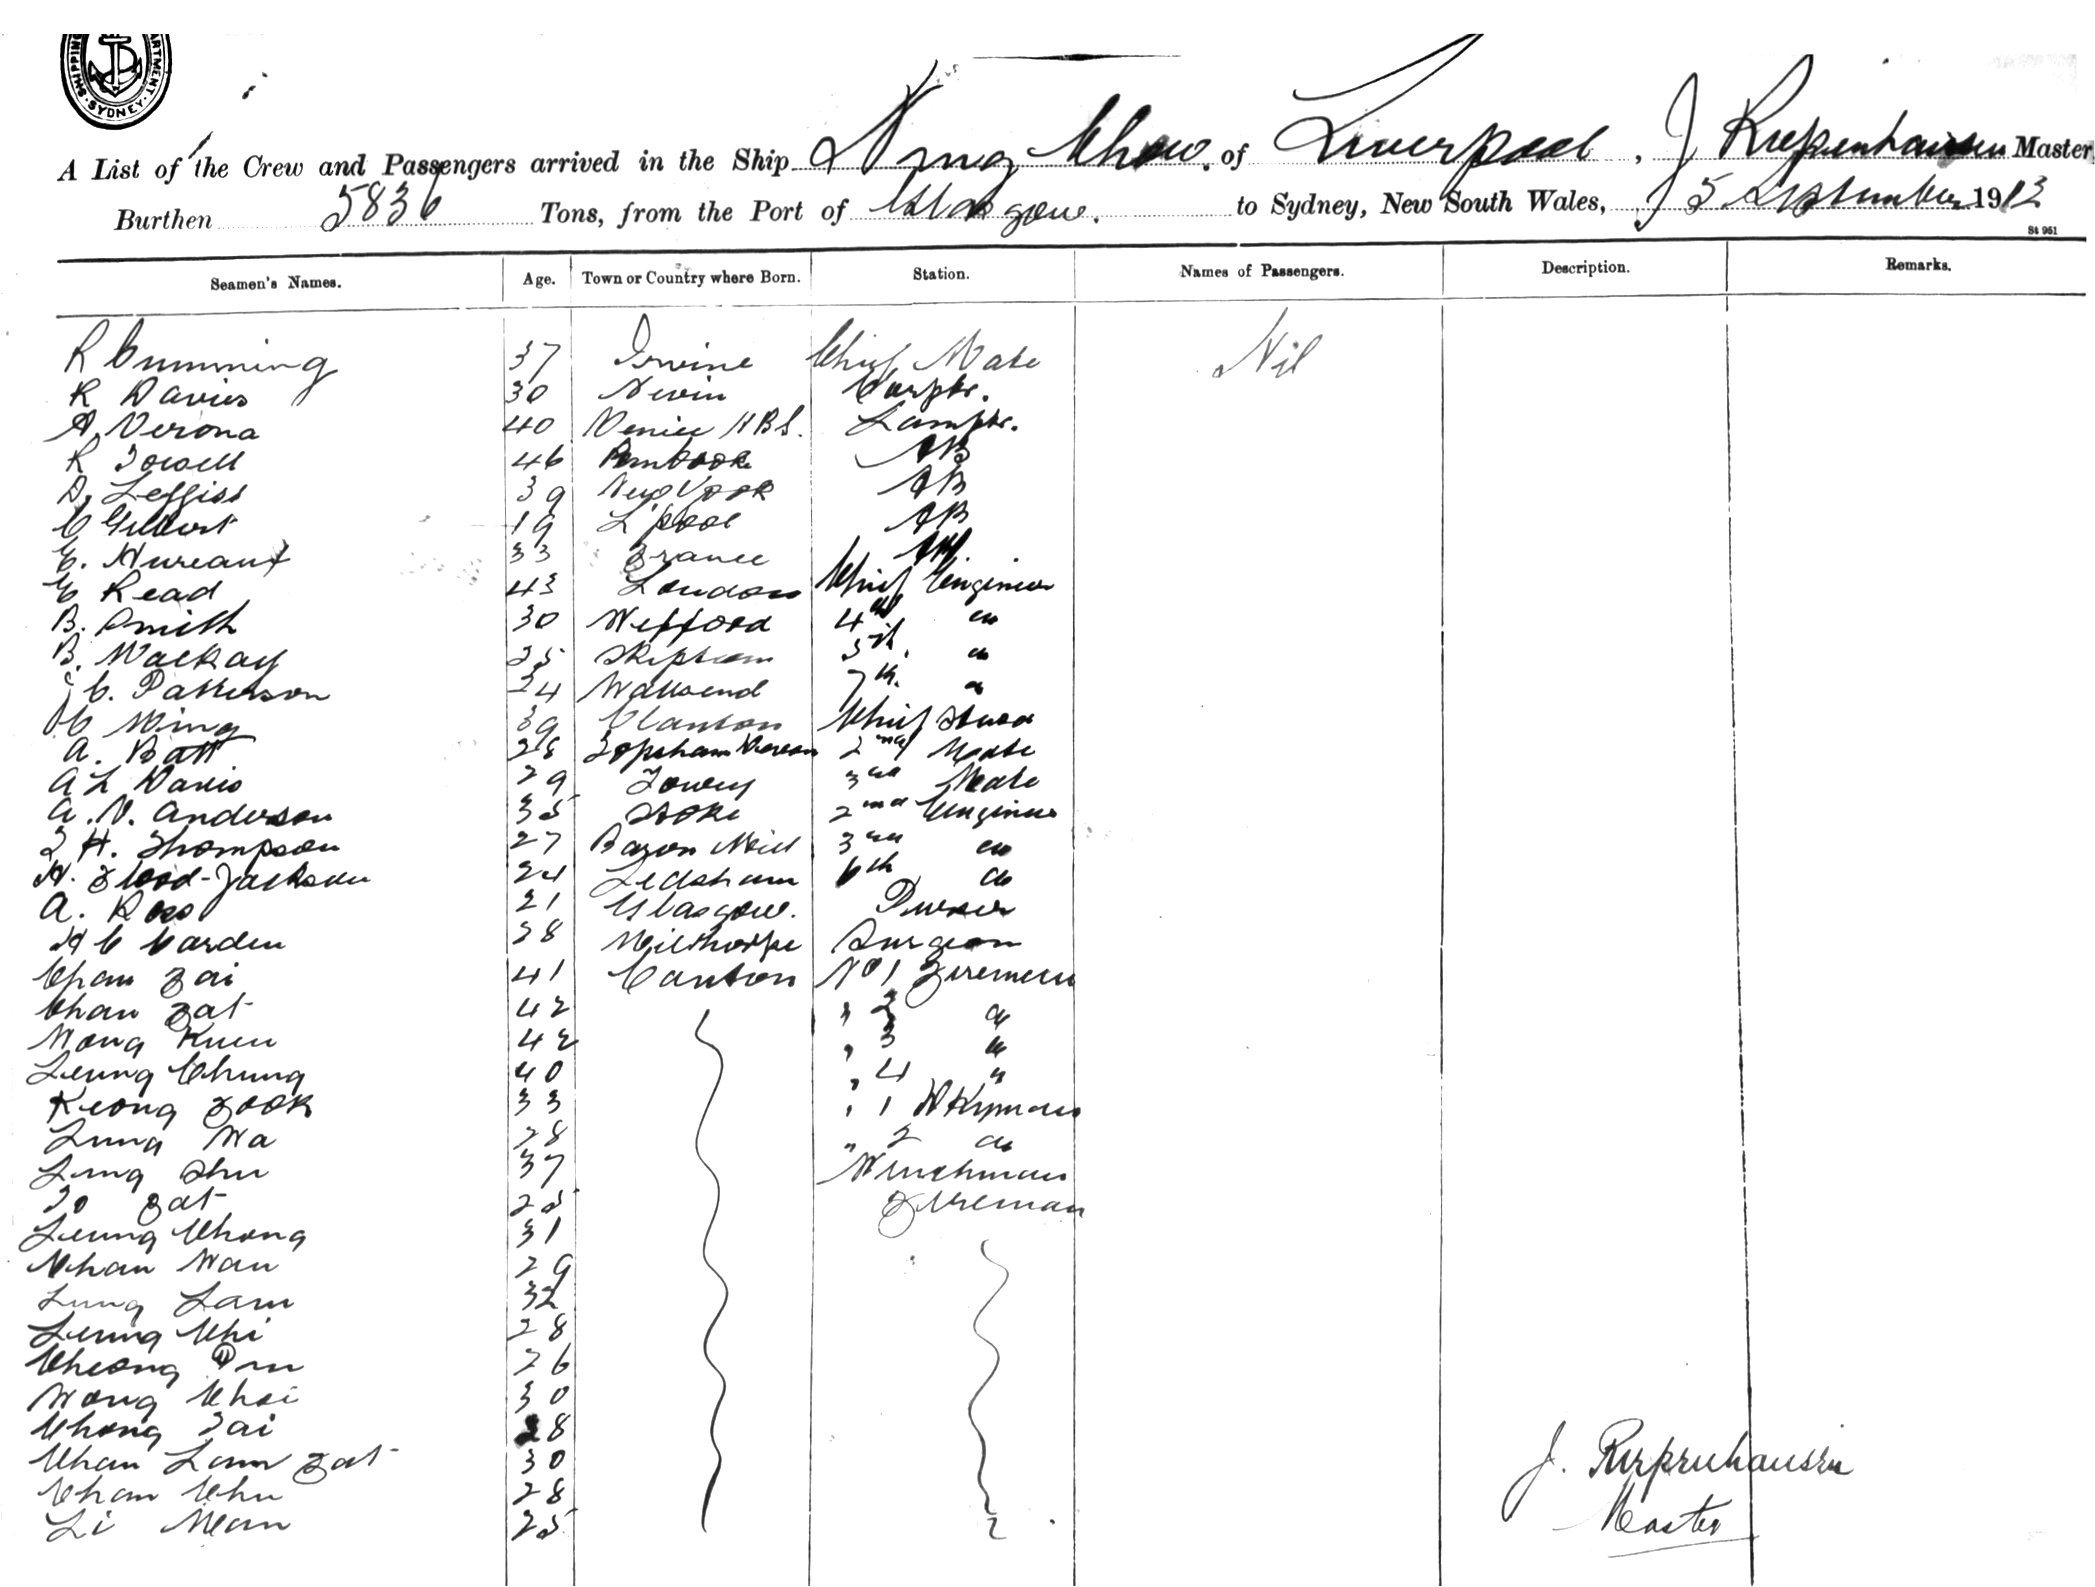 SHIPPING DEPARTMENT SYDNEY
A List of the Crew and Passengers arrived in the Ship Ning Chow. of Liverpool, J Riepenhausen Master
Burthen 5836 Tons, from the Port of Glasgow. to Sydney, New South Wales, 5 September 1913
St 951
Seamen's Names. Age. Town or Country where Born. Station. Names of Passengers. Description. Remarks.
R Cumming 37 Irvine Chief Mate Nil
R Davies 30 Nevin Carptr.
A Verona 40 Venice NBS. Lamptr.
R Powell 46 AB
D. 39 New York AB
C Gilbert 19 L'pool AB
E. Hureaux 33 France AB.
E Read 43 London Chief Engineer
B. Smith 30 Wexford 4th do
B. Mackay 25 Skipton 5th. do
J C. Patterson 24 Wallsend 7th. do
C Ming 39 Canton Chief Stwd
A. Batt 28 Topsham Devon 2nd Mate
A L Davis 29 Fowey 3rd Mate
A. V. Anderson 35 Stoke 2nd Engineer
T H. Thompson 27 3rd do
H. Flood-Jackson 24 Ledsham 6th do
A. Ross 21 Glasgow. Purser
H C Carden 28 Milthorpe Surgeon
Chan Fai 41 Canton No 1 Firemen
Chan Fat 42 " 2 do
Wong Kuen 42 " 3 "
Leung Chung 40 " 4 "
Keong Fook 33 " 1
Lung Wa 28 " 2 do
Lung Shu 37 Winchman
To Fat 25 Fireman
Leung Chong 31
Chan Wan 29
Lung Lam 32
Leung Chi 28
Cheong 26
Wong Choi 30
Chong Tai 28
Chan Lam Fat 30
Chan Chu 28
Li Man 25
J. Riepenhausen
Master